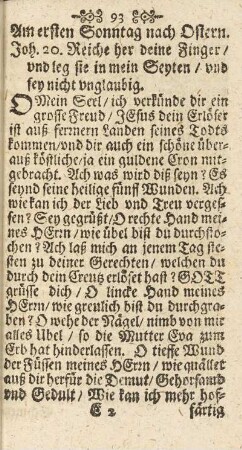 93
Am ersten Sonntag nach Ostern.
Joh. 20. Reiche her deine Finger/
vnd leg sie in mein Seyten / vnd
sey nicht vnglaubig.
O Mein Seel/ ich verkünde dir ein
grosse Freud/ JEsus dein Erlöser
ist auß ferrnern Landen seines Todts
kommen/vnd dir auch ein schöne über-
auß köstliche/ja ein guldene Cron mit-
gebracht. Ach was wird diß seyn? Es
seynd seine heilige fünff Wunden. Ach
wie kan ich der Lieb vnd Treu verges-
sen? Sey gegrüßt/O rechte Hand mei-
nes HErn/wie übel bist du durchsto-
chen? Ach laß mich an jenem Tag ste-
hen zu deiner Gerechten/ welchen du
durch dein Creutz erlöset hast? GOTT
grüsse dich / O lincke Hand meines
HErn/wie greulich bist du durchgra-
ben? O wehe der Nägel/ nimb von mir
alles Ubel / so die Mutter Eva zum
Erb hat hinderlassen. O tieffe Wund
der Füssen meines HErn/ wie quället
auß dir herfür die Demut/ Gehorsamb
vnd Gedult/ Wie kan ich mehr hof-
E 2 färtig